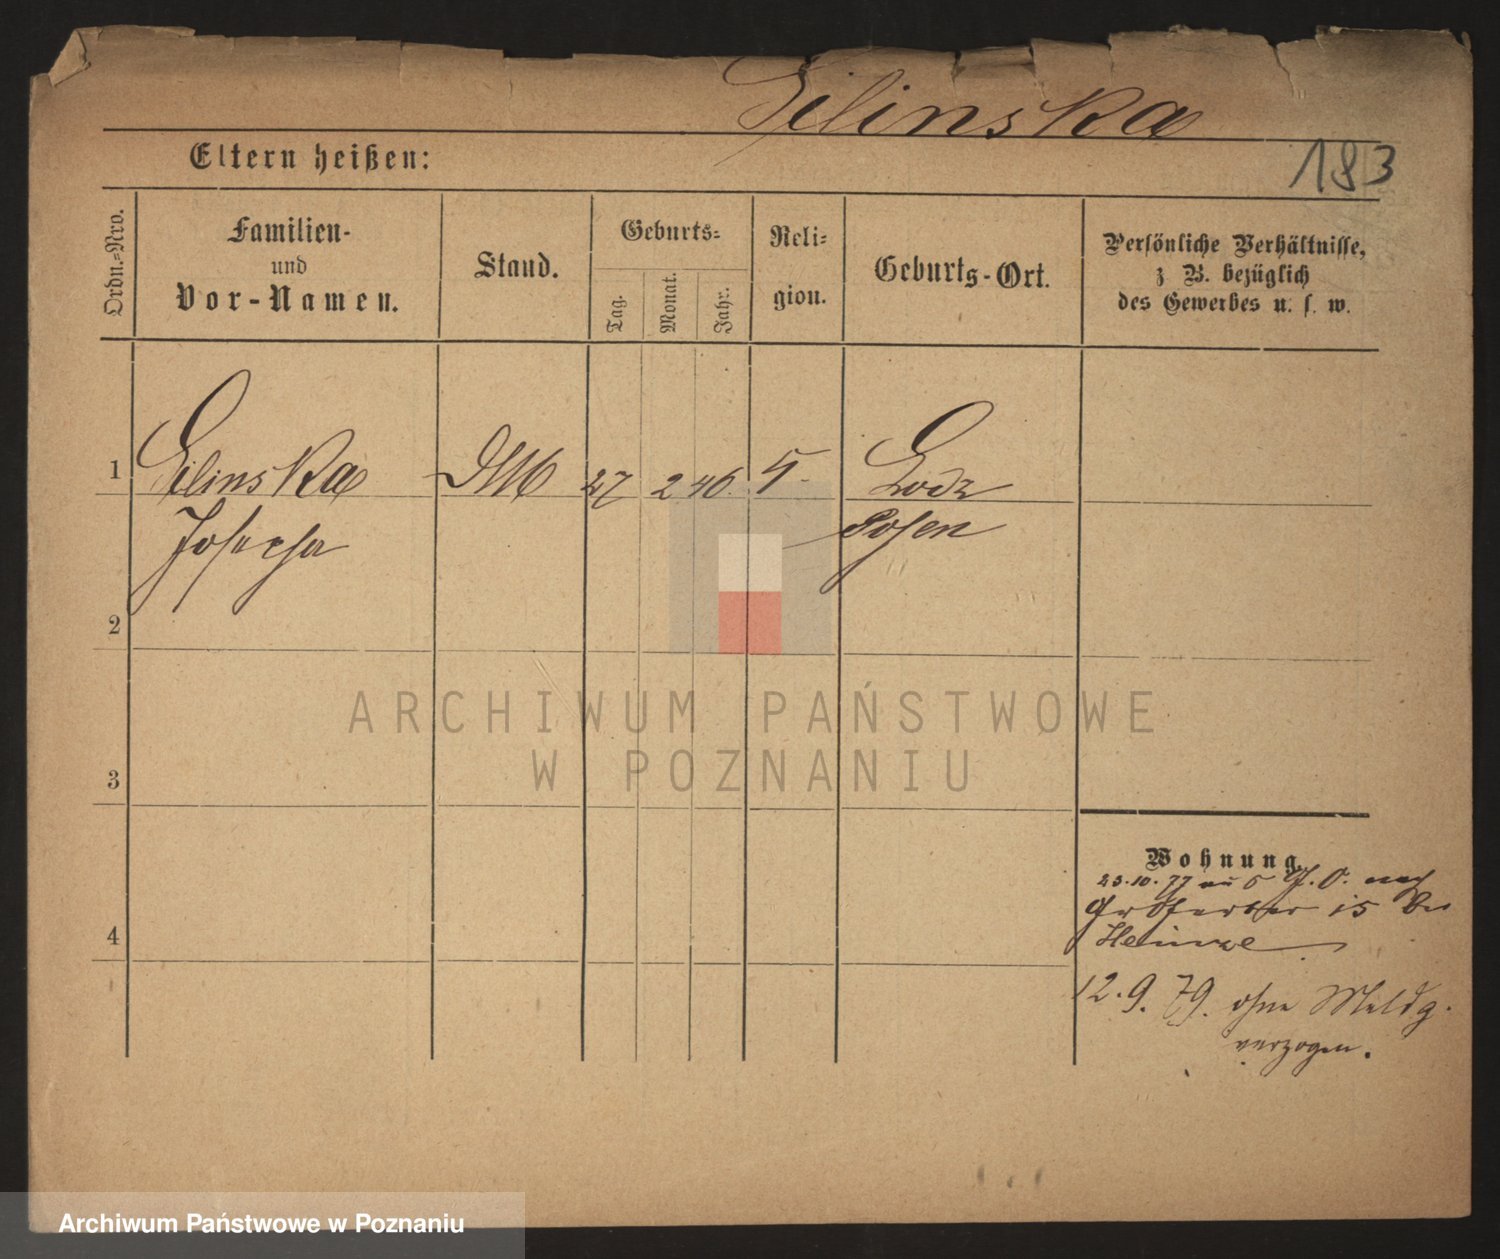 Gilinska
183
Eltern heißen:
Ordn.=Nro.
Familien-
und
Vor-Namen.
Stand.
Geburts=
Tag.
Monat.
Jahr.
Reli=
gion.
Geburts-Ort.
Persönliche Verhältnisse,
z B. bezüglich
des Gewerbes u. s. w.
1
Gilinska
DM
27
2
46.
Lodz
Josepha
Posen
2
3
4
ARCHIWUM PAŃSTWOWE
W POZNANIU
Wohnung.
23.10.77
Gr Gerber 15 bei
12.9.79. ohne Meldg.
verzogen.
Archiwum Państwowe w Poznaniu